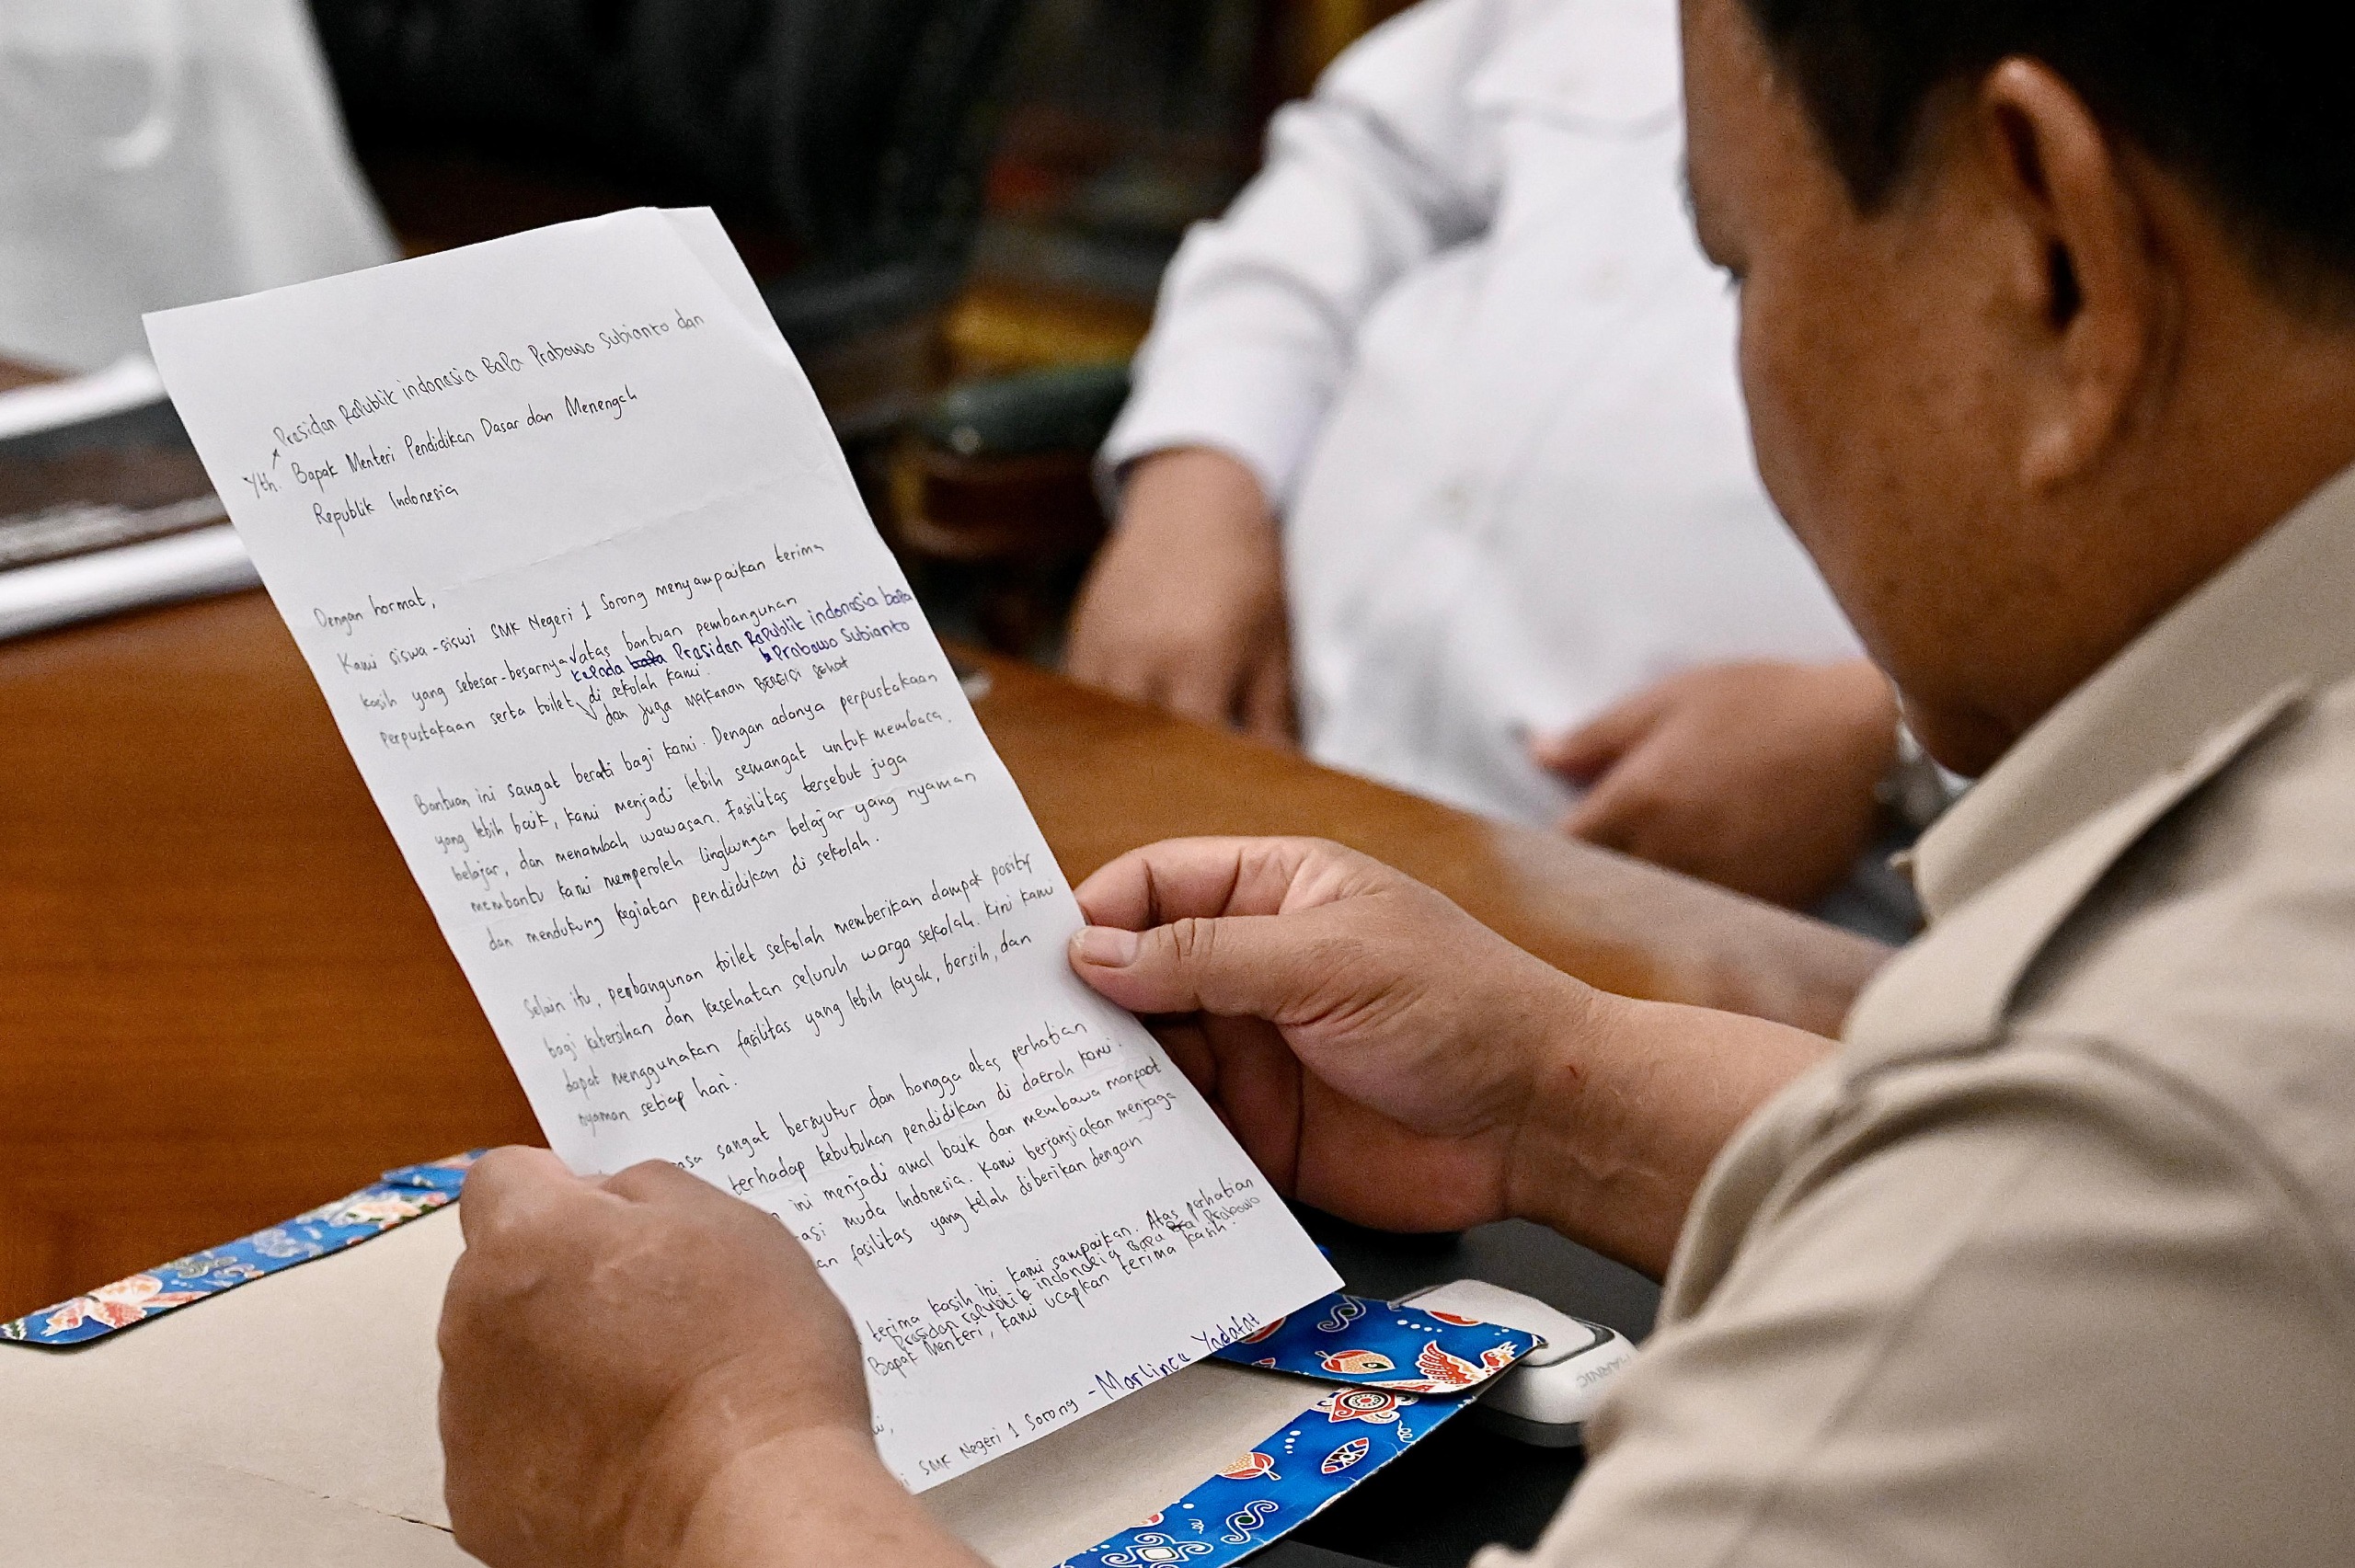 Presiden Republik indonesia Bapa Prabowo Subianto dan
Yth. Bapak Menteri Pendidikan Dasar dan Menengah
Republik Indonesia
Dengan hormat,
Kami siswa-siswi SMK Negeri 1 Sorong menyampaikan terima
kasih yang sebesar-besarnya atas bantuan pembangunan
kepada bapa Presiden Republik indonesia bapa
Prabowo Subianto
perpustakaan serta toilet di sekolah kami.
dan juga MAKANAN BERGIZI Sehat
Bantuan ini sangat berarti bagi kami. Dengan adanya perpustakaan
yang lebih baik, kami menjadi lebih semangat untuk membaca,
belajar, dan menambah wawasan. Fasilitas tersebut juga
membantu kami memperoleh lingkungan belajar yang nyaman
dan mendukung kegiatan pendidikan di sekolah.
Selain itu, pembangunan toilet sekolah memberikan dampak positif
bagi kebersihan dan kesehatan seluruh warga sekolah. Kini kami
dapat menggunakan fasilitas yang lebih layak, bersih, dan
nyaman setiap hari.
asa sangat bersyukur dan bangga atas perhatian
terhadap kebutuhan pendidikan di daerah kami.
ini menjadi awal baik dan membawa manfaat
asi muda Indonesia. Kami berjanjiakan menjaga
an fasilitas yang telah diberikan dengan
terima kasih ini kami sampaikan. Atas perhatian
Presiden republik indonesia Bapa Prabowo
Bapak Menteri, kami ucapkan terima kasih.
SMK Negeri 1 Sorong - Marlince Yadafat